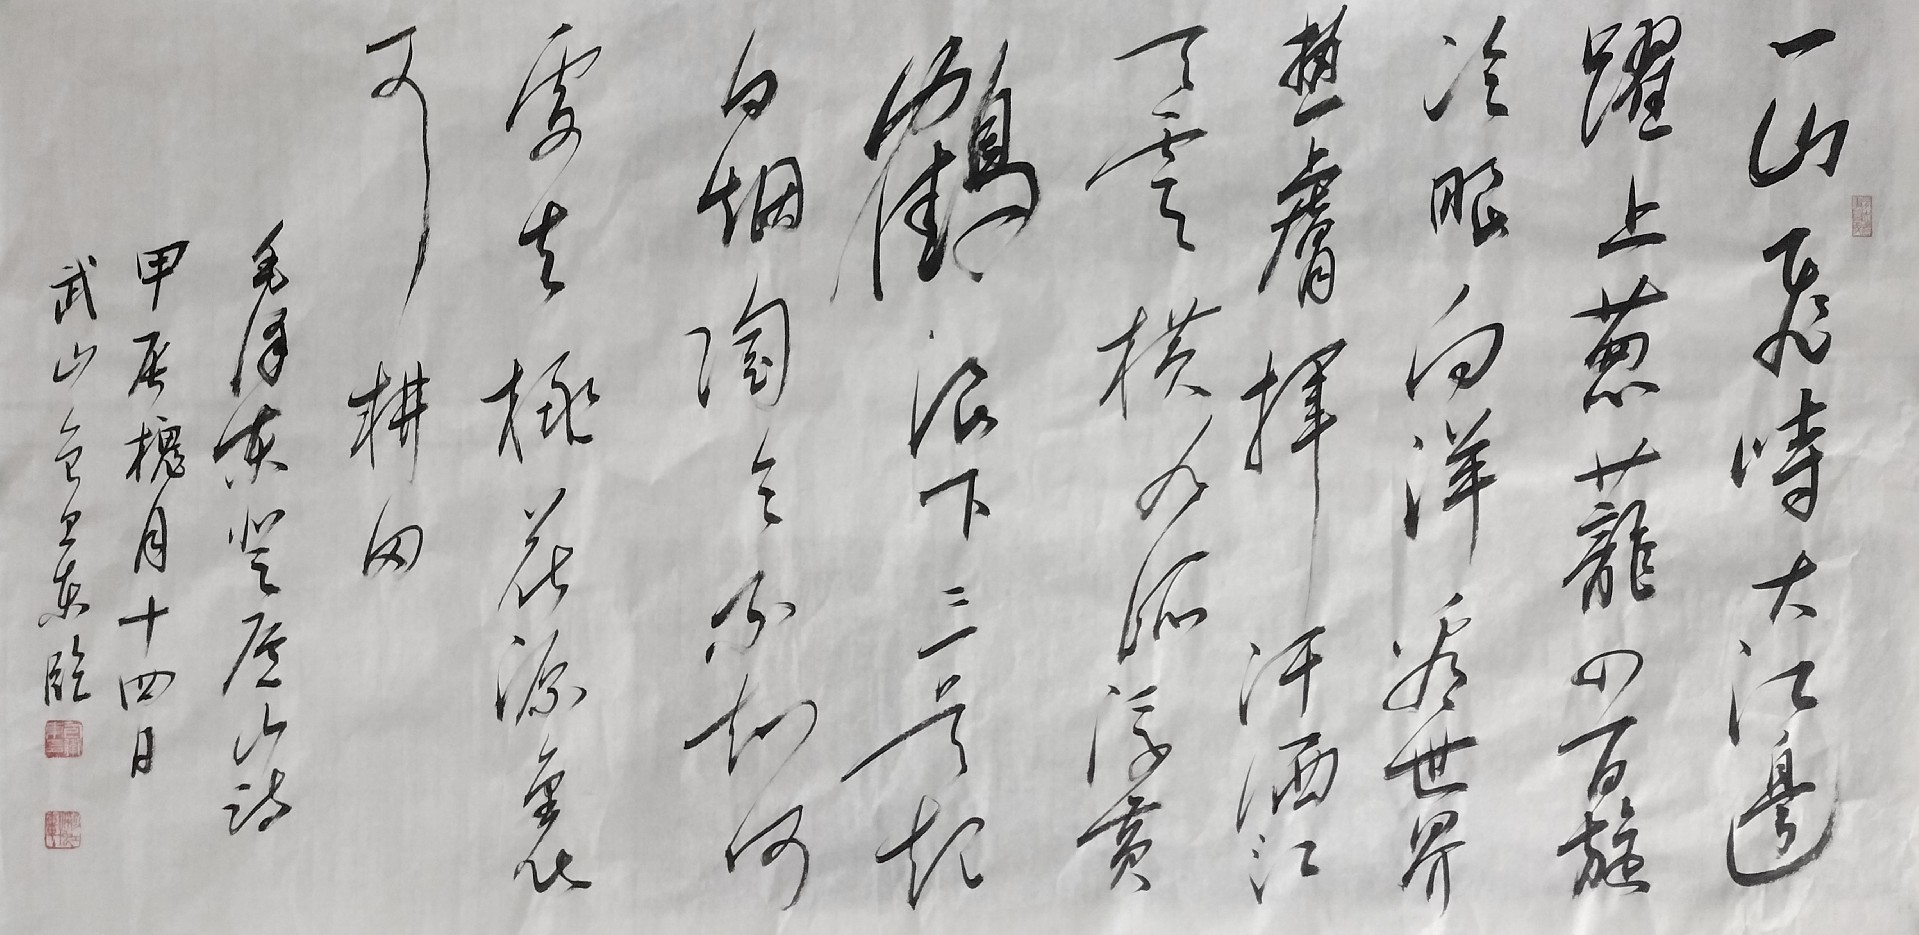 一山飛峙大江邊
躍上葱蘢四百旋
冷眼向洋看世界
熱膚揮汗洒江
天雲横九派浮黄
鶴浪下三吴起
白烟陶令不知何
處去桃花源裏
可耕田
毛泽东登庐山诗
甲辰槐月十四日
武山 东臨